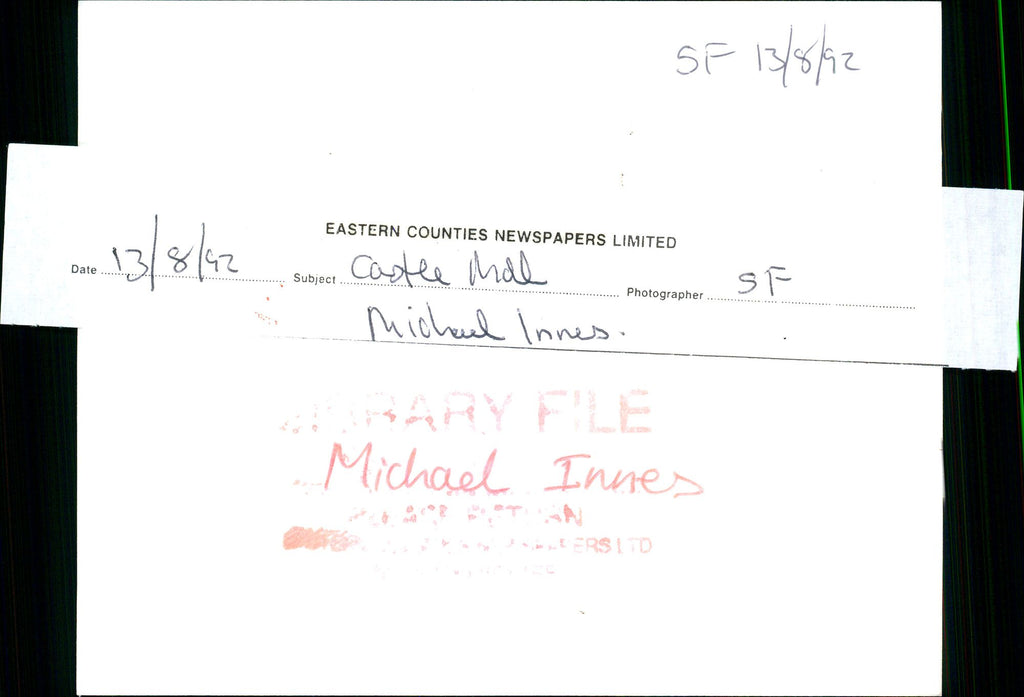 SF 13/8/92
EASTERN COUNTIES NEWSPAPERS LIMITED
Date 13/8/92 Subject Castle Mall Photographer SF
Michael Innes.
LIBRARY FILE
Michael Innes
PLEASE RETURN
NEWSPAPERS LTD